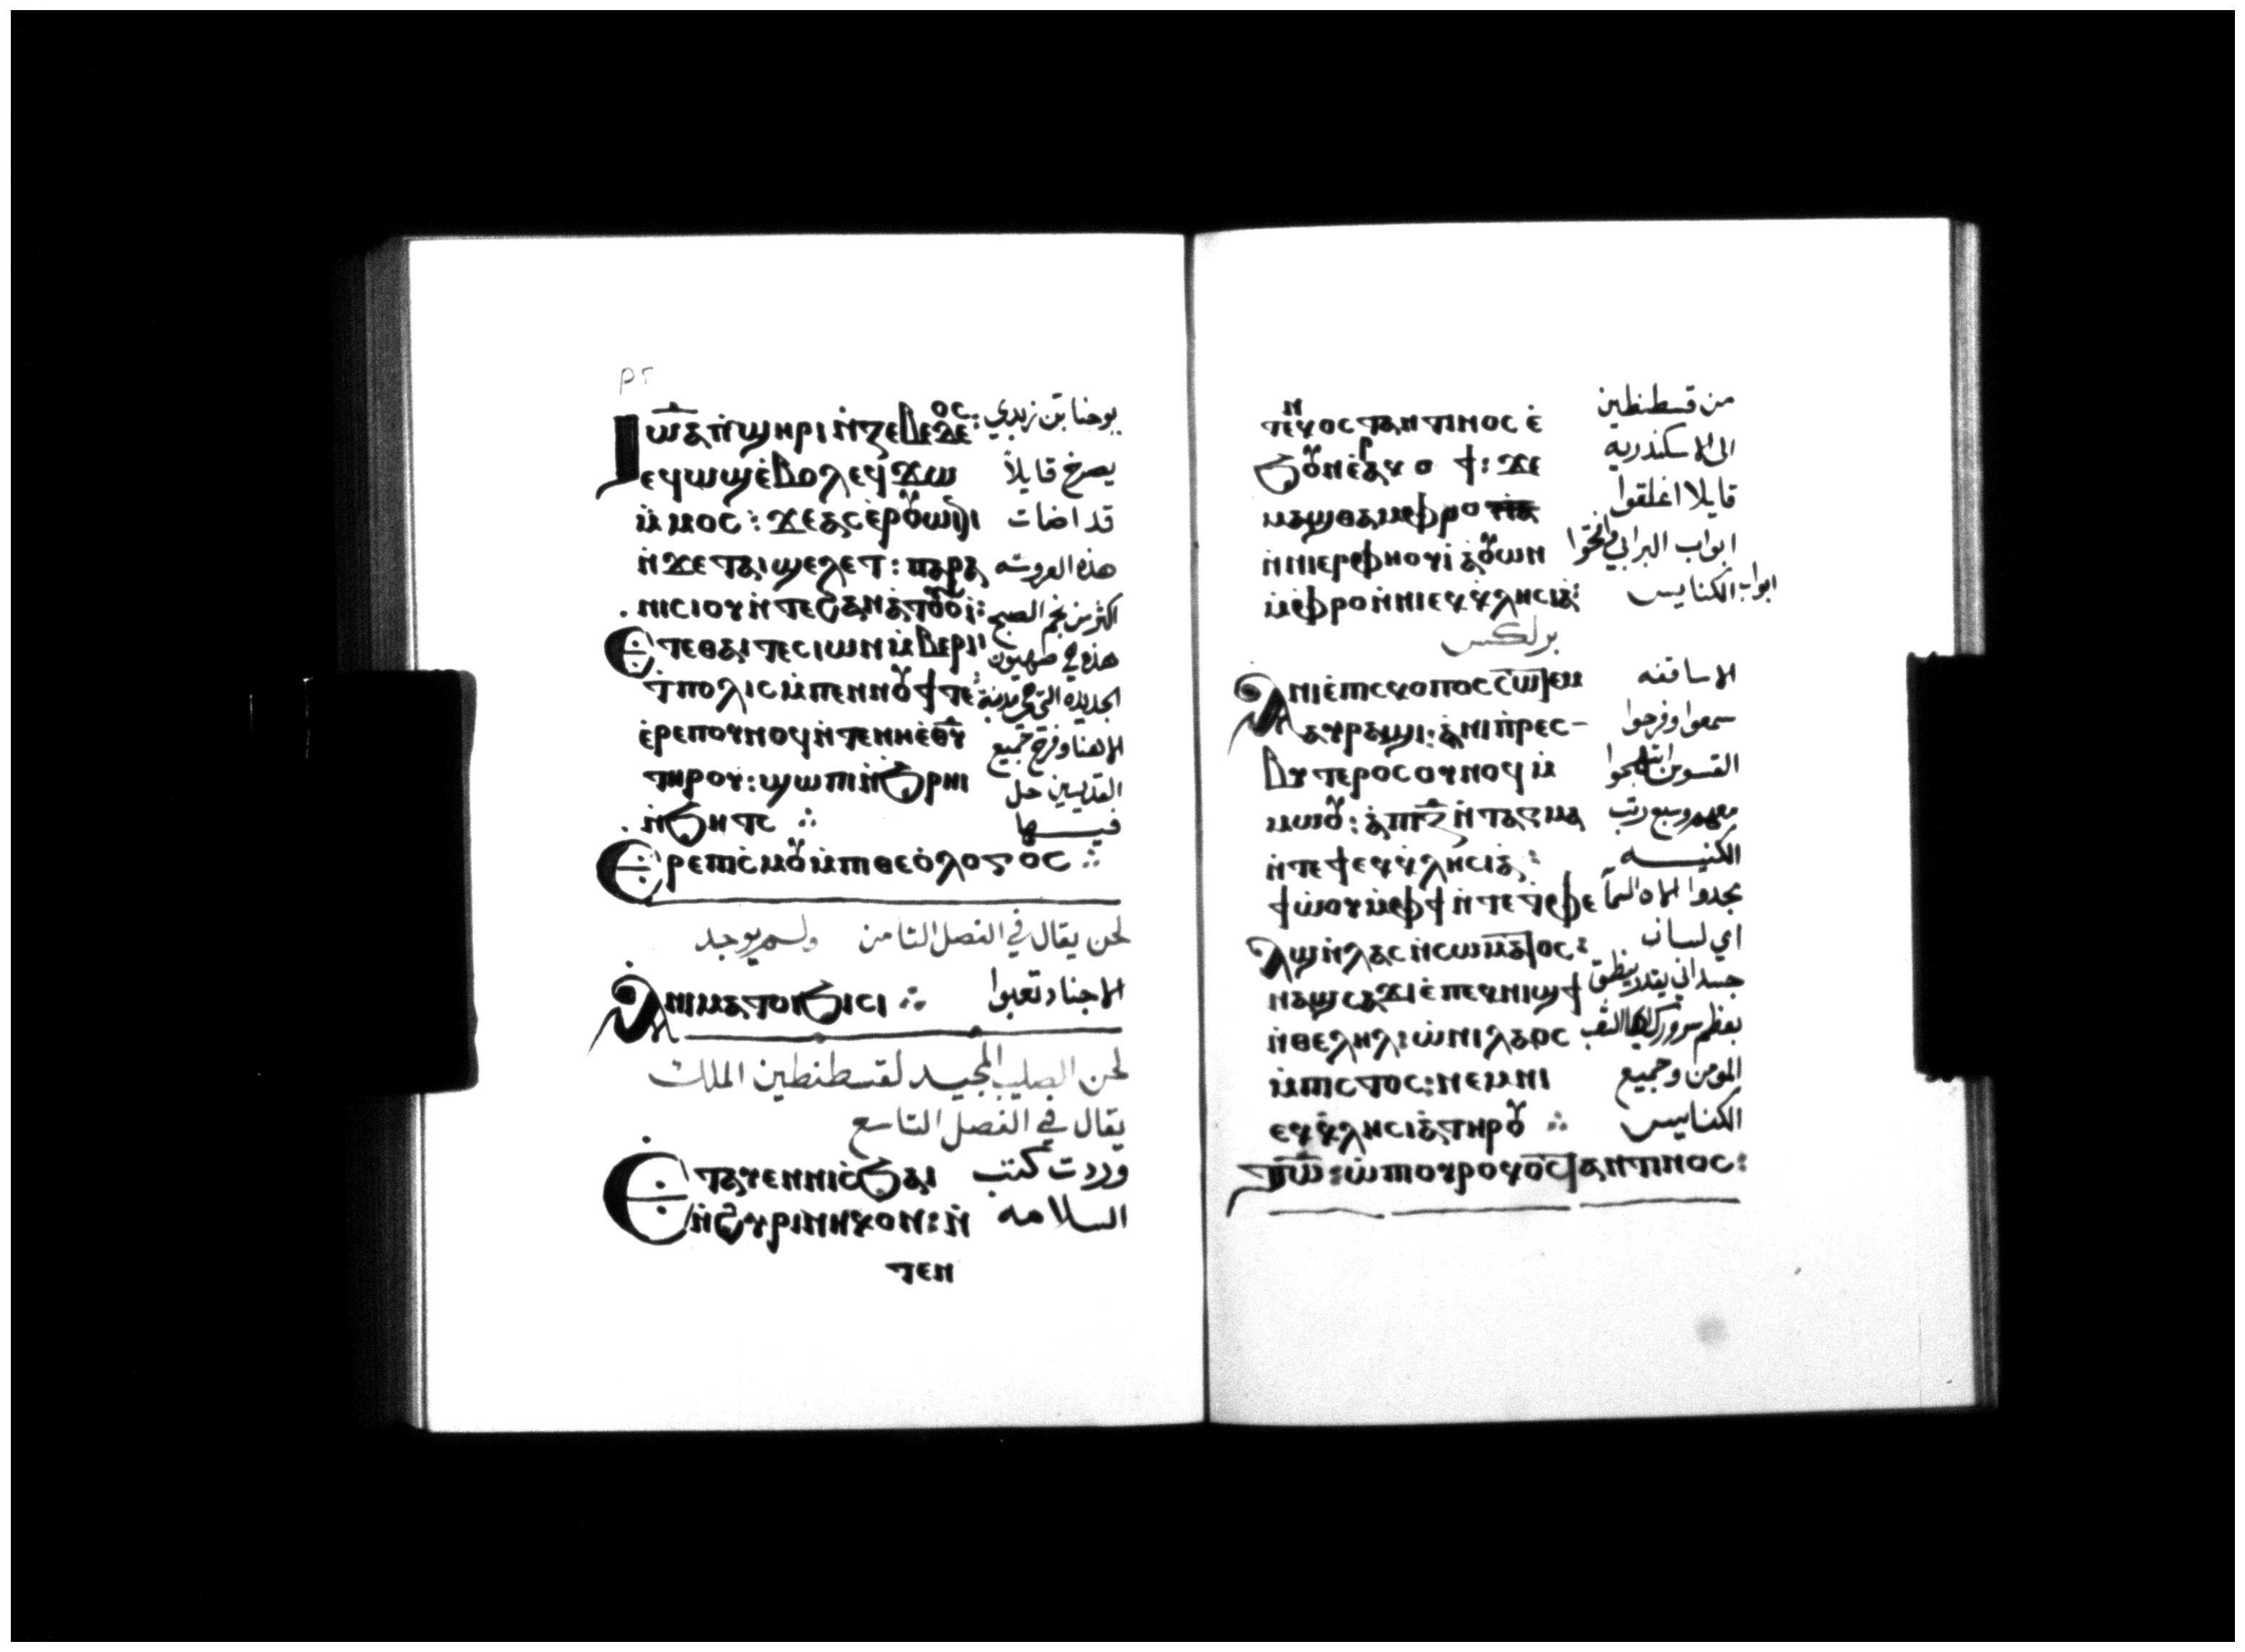 ⲓⲱⲁ ⲡ̀ϣⲏⲣⲓ ⲛ̀ⲍⲉⲃⲉⲇⲉⲟⲥ: يوحنا بن زبدي
ⲉϥⲱϣ ⲉ̀ⲃⲟⲗ ⲉϥϫⲱ يصرخ قايلاً
ⲙ̀ⲙⲟⲥ: ϫⲉ ⲁⲥⲉⲣⲟⲩⲱⲓⲛⲓ قد اضات
ⲛ̀ϫⲉ ⲧⲁⲓϣⲉⲗⲉⲧ: ⲡⲁⲣⲁ هذه العروسه
ⲛⲓⲥⲓⲟⲩ ⲛ̀ⲧⲉ ϩⲁⲛⲁⲧⲟⲟⲩⲓ̀: اكثر من نجم الصبح
ⲉ̀ⲧⲉ ⲑⲁⲓ ⲧⲉ ⲥⲓⲱⲛ ⲙ̀ⲃⲉⲣⲓ هذه هي صهيون
ϯⲡⲟⲗⲓⲥ ⲙ̀ⲡⲉⲛⲛⲟⲩϯ ⲧⲉ: الجديدة التي هي مدينة
ⲉ̀ⲣⲉ ⲡⲟⲩⲛⲟϥ ⲛ̀ⲧⲉ ⲛⲏⲉⲑⲩ الاهنا وفرح جميع
ⲧⲏⲣⲟⲩ: ϣⲱⲡⲓ ⲛ̀ϧⲣⲏⲓ القديسين حل
ⲛ̀ϧⲏⲧⲥ فيها
ⲉ̀ⲣⲉ ⲡⲓⲥ̀ⲙⲟⲩ ⲙ̀ⲡⲓⲑⲉⲟ̀ⲗⲟⲅⲟⲥ
لحن يقال في الفصل الثامن ولم يوجد
ⲁ̀ ⲛⲓⲙⲁⲧⲟⲓ ϧⲓⲥⲓ الاجناد تعبوا
لحن الصليب المجيد لقسطنطين الملك
يقال في الفصل التاسع
ⲉ̀ⲧⲁⲩⲉⲛ ⲛⲓⲥ̀ϧⲁⲓ وردت كتب
ⲛ̀ϩⲩⲣⲓⲛⲏⲕⲟⲛ: ⲛ̀ السلامه
ⲧⲉⲛ
ⲧⲉⲛ ⲕⲟⲥⲧⲁⲛⲧⲓⲛⲟⲥ ⲉ̀ من قسطنطين
ϧⲟⲩⲛ ⲉ̀ⲣⲁⲕⲟϯ: ϫⲉ الى الاسكندريه
ⲙⲁϣⲑⲁⲙ ⲫⲣⲟ قايلا اغلقوا
ⲛ̀ⲛⲓⲉⲣⲫⲏⲟⲩⲓ̀ ⲁⲟⲩⲱⲛ ابواب البرابي وافتحوا
ⲙ̀ⲫⲣⲟ ⲛ̀ⲛⲓⲉⲕⲕⲗⲏⲥⲓⲁ: ابواب الكنايس
برلكس
ⲁ̀ ⲛⲓⲉ̀ⲡⲓⲥⲕⲟⲡⲟⲥ ⲥⲱⲧⲉⲙ الاساقفه
ⲁⲩⲣⲁϣⲓ: ⲁ̀ ⲛⲓⲡ̀ⲣⲉⲥ- سمعوا وفرحوا
ⲃⲩⲧⲉⲣⲟⲥ ⲟⲩⲛⲟϥ ⲙ̀ القسوس ابتهجوا
ⲙⲱⲟⲩ: ⲁ̀ ⲡⲓⲍ ⲛ̀ⲧⲁⲅⲙⲁ معهم وسبع رتب
ⲛ̀ⲧⲉ ϯⲉⲕⲕⲗⲏⲥⲓⲁ: الكنيسه
ϯⲱ̀ⲟⲩ ⲙ̀ⲫϯ ⲛ̀ⲧⲉ ⲧ̀ⲫⲉ مجدوا الاه السما
ⲁϣ ⲛ̀ⲗⲁⲥ ⲛ̀ⲥⲱⲙⲁⲧⲓⲕⲟⲥ: اي لسان
ⲛⲁϣⲥⲁϫⲓ ⲉ̀ⲡⲉⲕⲛⲓϣϯ جسداني يقدر ينطق
ⲛ̀ⲑⲉⲗⲏⲗ: ⲱ̀ ⲡⲓⲗⲁⲟⲥ بعظم سرورك ايها الشعب
ⲙ̀ⲡⲓⲥⲧⲟⲥ: ⲛⲉⲙ ⲛⲓ المومن وجميع
ⲉⲕⲕⲗⲏⲥⲓⲁ ⲧⲏⲣⲟⲩ الكنايس
ⲱ̀ ⲡⲟⲩⲣⲟ ⲕⲟⲥⲧⲁⲛⲧⲓⲛⲟⲥ: